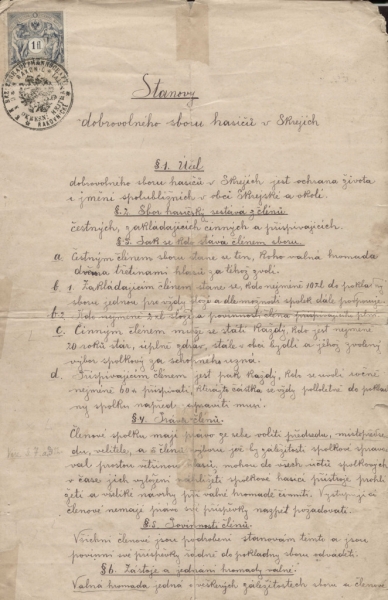 1 fl
Stanovy
dobrovolného sboru hasičů v Skrejích
§ 1. Účel
dobrovolného sboru hasičů v Skrejích jest ochrana života
i jmění spoluobčanů v obci Skrejské a okolí.
§. 2. Sbor hasičský sestává z členů
čestných, zakládajících činných a přispívajících.
§. 3. Jak se kdo stává členem sboru.
a. Čestným členem sboru stane se ten, koho valná hromada
dvěma třetinami hlasů za téhož zvolí.
b. 1 Zakládajícím členem stane se, kdo nejméně 10 zl. do pokladny
sboru jednou pro vždy složí a dle možnosti spolek dále podporuje.
b. 2. Kdo nejméně 2 zl. složí a povinnosti člena přispívajícího plní.
c. Činným členem může se státi každý, kdo jest nejméně
20 roků stár, úplně zdráv, stále v obci bydlí a jehož zvolený
výbor spolkový za schopného uzná.
d. Přispívajícím členem jest pak každý, kdo se uvolí ročně
nejméně 60 kr přispívati, kterážto částka se vždy pololetně do poklad
ny spolku napřed spraviti musí.
§. 4. Práva členů.
Členové spolku mají právo ze sebe voliti předsedu, místopředse
du, velitele, a členy výboru jož by záležitosti spolkové spravo
val prostou většinou hlasů, mohou do všech účtů spolkových
v čase jich vyložení nahlížeti spolkové hasicí přístroje prohlí
žeti a veškeré návrhy při valné hromadě činiti. Vystupující
členové nemají práva své příspěvky nazpět požadovati.
§. 5. Povinnosti členů.
Všichni členové jsou podrobeni stanovám těmto a jsou
povinni své příspěvky řádně do pokladny sboru odváděti.
§ 6. Zástoje a jednání hromady valné.
Valná hromada jedná o veškerých záležitostech sboru a členové